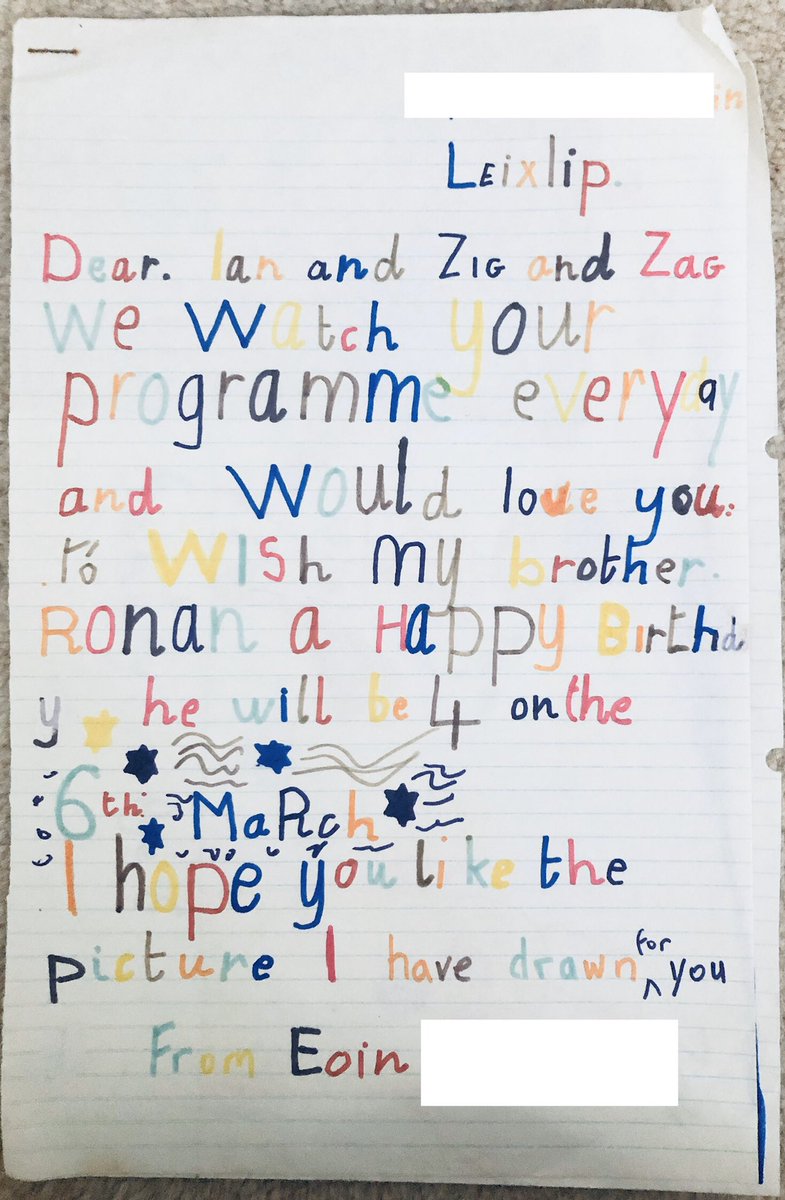 in
Leixlip.
Dear. Ian and Zig and Zag
We Watch your
programme everyday
and Would love you.
to Wish my brother.
Ronan a Happy Birthda
y he will be 4 on the
6th March
I hope you like the
picture I have drawn for you
From Eoin